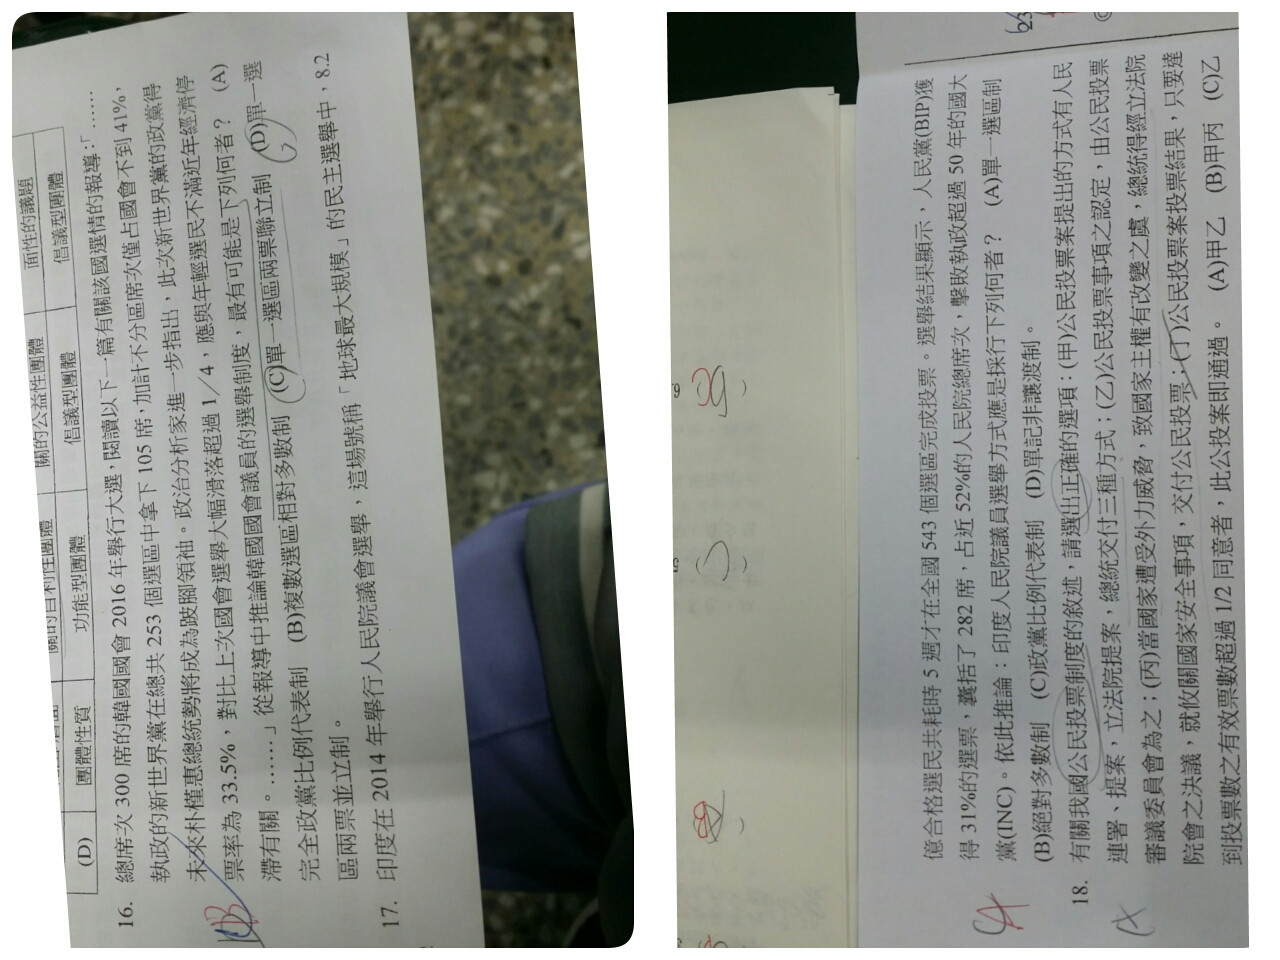 面性的議題
關的公益性團體
(D)
團體性質
功能型團體
倡議型團體
倡議型團體
16. 總席次 300 席的韓國國會 2016 年舉行大選，閱讀以下一篇有關該國選情的報導：「……
執政的新世界黨在總共 253 個選區中拿下 105 席，加計不分區席次僅占國會不到 41%，
未來朴槿惠總統勢將成為跛腳領袖。政治分析家進一步指出，此次新世界黨的政黨得
票率為 33.5%，對比上次國會選舉大幅滑落超過 1／4，應與年輕選民不滿近年經濟停
滯有關。……」從報導中推論韓國國會議員的選舉制度，最有可能是下列何者？ (A)
完全政黨比例代表制 (B)複數選區相對多數制 (C)單一選區兩票聯立制 (D)單一選
區兩票並立制。
17. 印度在 2014 年舉行人民院議會選舉，這場號稱「地球最大規模」的民主選舉中，8.2
億合格選民共耗時 5 週才在全國 543 個選區完成投票。選舉結果顯示，人民黨(BJP)獲
得 31%的選票，囊括了 282 席，占近 52%的人民院總席次，擊敗執政超過 50 年的國大
黨(INC)。依此推論：印度人民院議員選舉方式應是採行下列何者？ (A)單一選區制
(B)絕對多數制 (C)政黨比例代表制 (D)單記非讓渡制。
18. 有關我國公民投票制度的敘述，請選出正確的選項：(甲)公民投票案提出的方式有人民
連署、提案，立法院提案，總統交付三種方式；(乙)公民投票事項之認定，由公民投票
審議委員會為之；(丙)當國家遭受外力威脅，致國家主權有改變之虞，總統得經立法院
院會之決議，就攸關國家安全事項，交付公民投票；(丁)公民投票案投票結果，只要達
到投票數之有效票數超過 1/2 同意者，此公投案即通過。 (A)甲乙 (B)甲丙 (C)乙